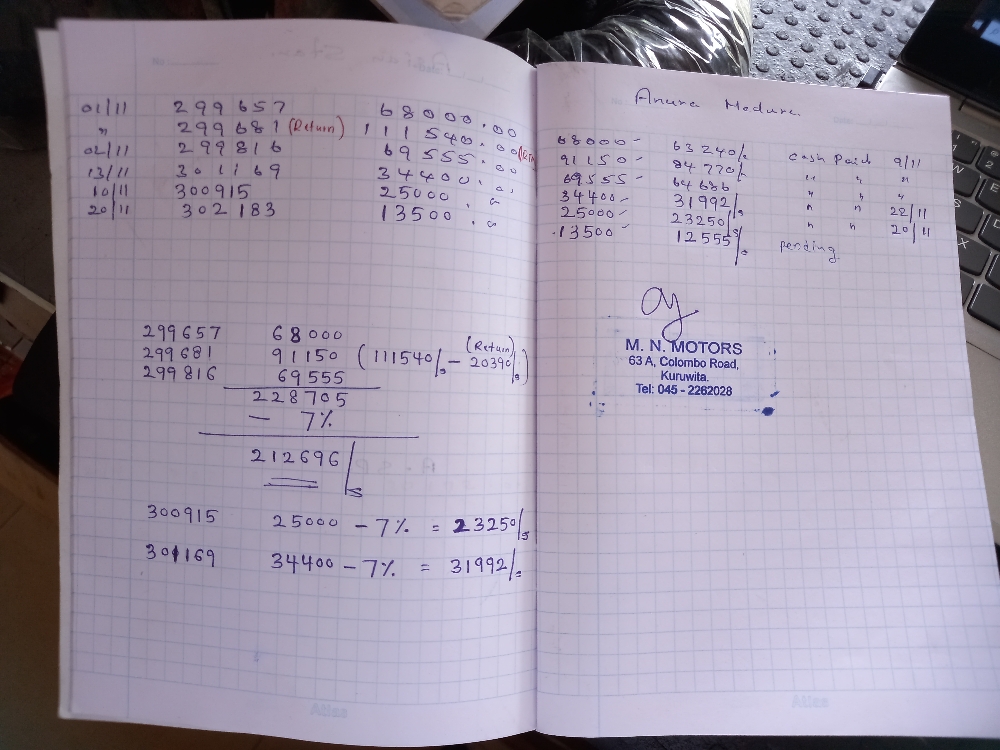 01/11 299657 68000.00
" 299681 (Return) 111540.00
02/11 299816 69555.00
13/11 301169 34400.00
10/11 300915 25000. "
20/11 302183 13500. "
299657 68000
299681 91150 (111540/= - (Return) 20390/=)
299816 69555
228705
- 7%
212696/=
300915 25000 - 7% = 23250/=
301169 34400 - 7% = 31992/=
Atlas
Anura Modara
68000 - 63240/= cash Paid 9/11
91150 - 84770/= " " "
69555 - 64686 " " "
34400 - 31992/= " " 22/11
25000 - 23250/= " " 20/11
13500 - 12555/= pending
M. N. MOTORS
63 A, Colombo Road,
Kuruwita.
Tel: 045 - 2262028
Atlas